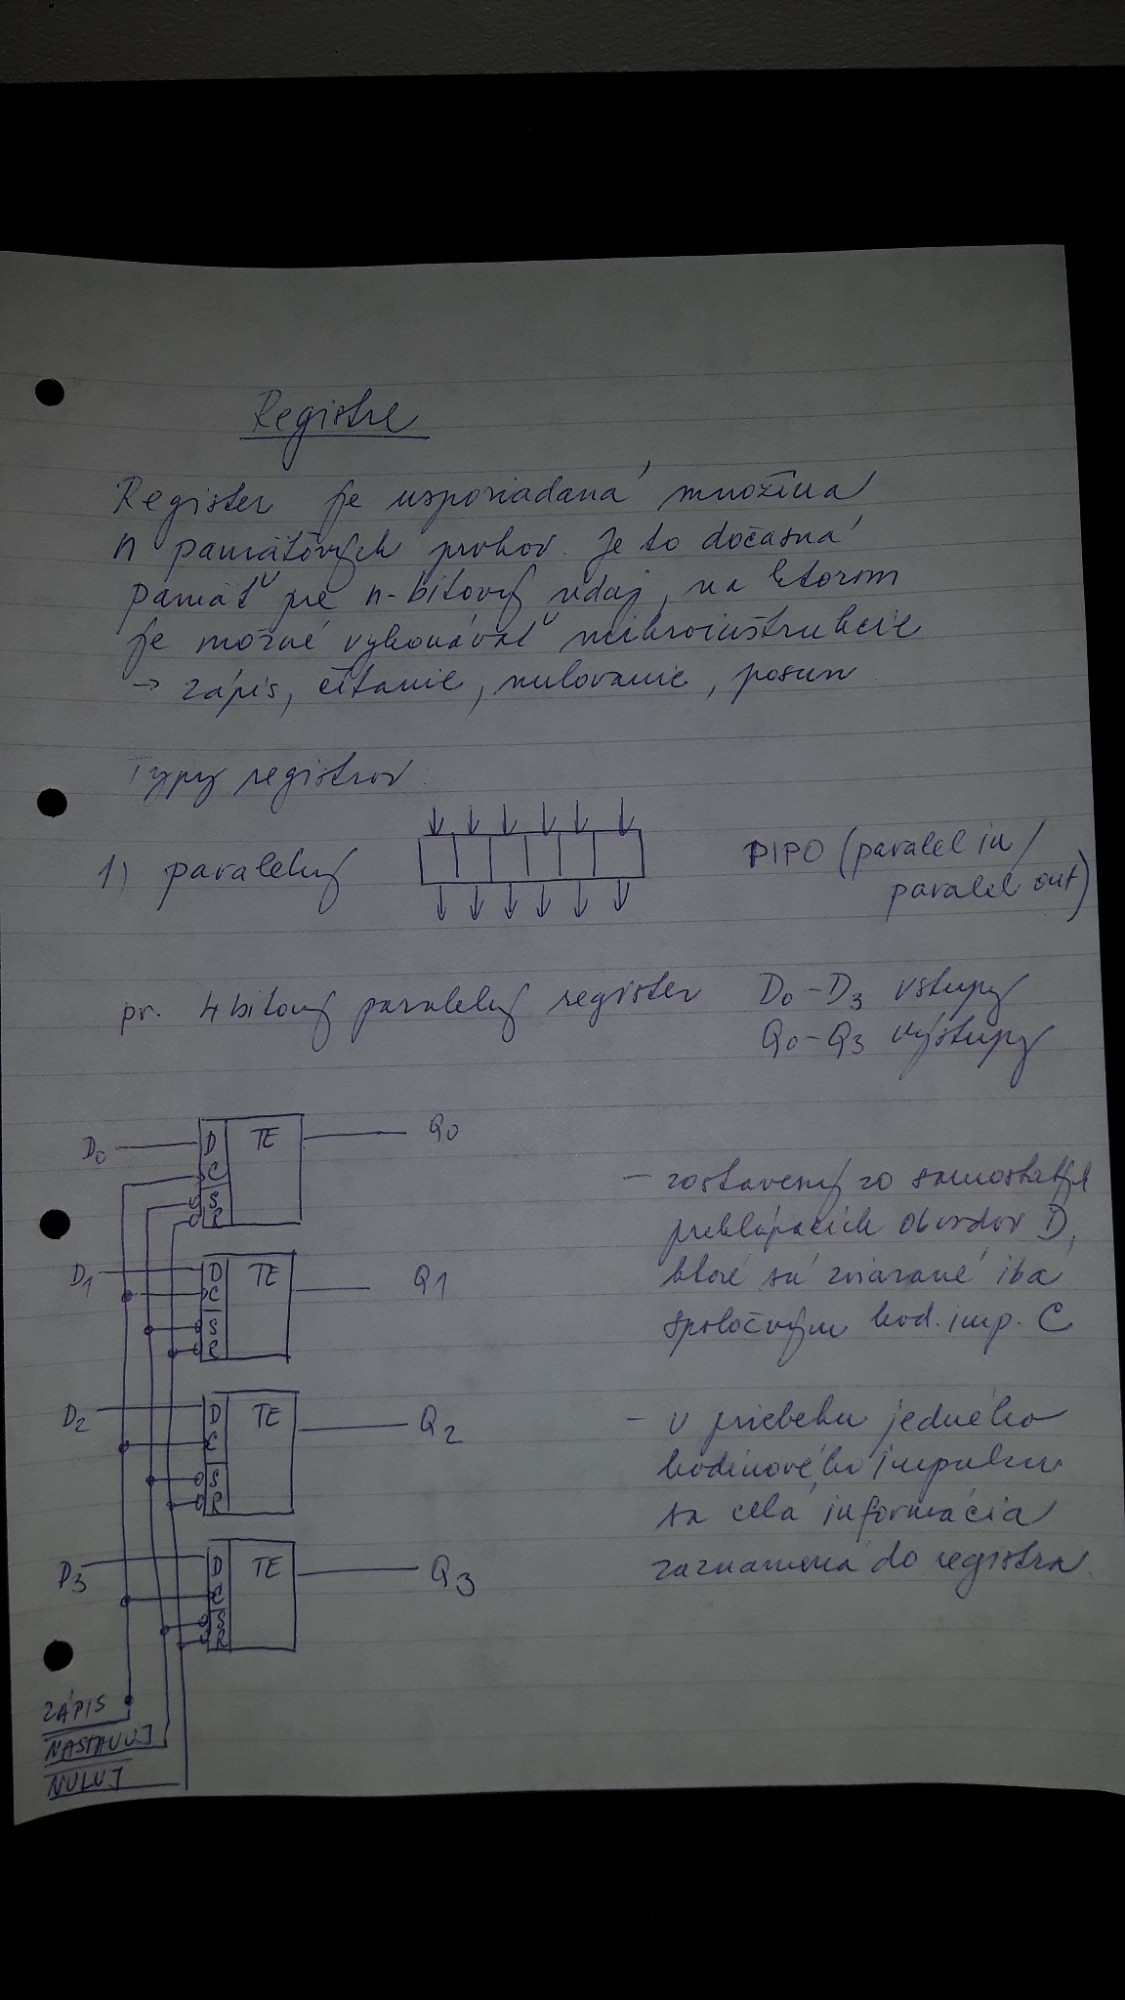 Registre
Register je usporiadaná množina
n pamäťových prvkov. Je to dočasná
pamäť pre n-bitový údaj, na ktorom
je možné vykonávať mikroinštrukcie
→ zápis, čítanie, nulovanie, posun
Typy registrov
1) paralelný
PIPO (paralel in/
paralel out)
pr. 4 bitový paralelný register D0-D3 vstupy
Q0-Q3 výstupy
D0 D TE Q0
C
S
R
D1 D TE Q1
C
S
R
D2 D TE Q2
C
S
R
D3 D TE Q3
C
S
R
ZÁPIS
NASTAVUJ
NULUJ
- zostavený zo samostatných
preklápacích obvodov D,
ktoré sú zviazané iba
spoločným hod. imp. C
- v priebehu jedného
hodinového impulzu
sa celá informácia
zaznamená do registra.